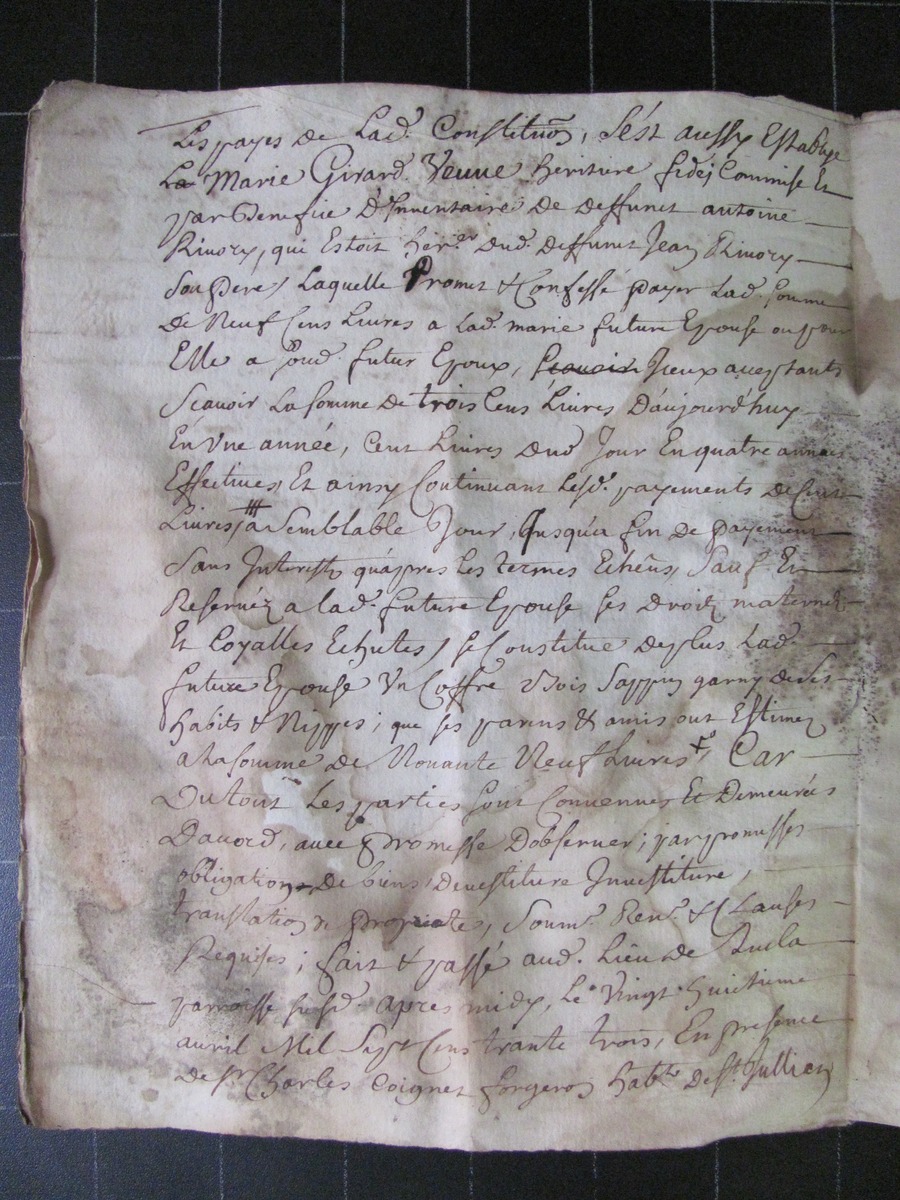 Les payes de Lad. Constituõn, Sest aussy Establye
La Marie Girard Veuve heritiere fidej Commise Et
par Benefice D'Inventaire De deffunct antoine
Rivory, qui Estoit her.er dud. Deffunct Jean Rivory
Son pere, Laquelle Promet & Confesse payer Lad. Somme
De Neuf Cens Livres a Lad. marie future Epouse ou pour
Elle a sond. futur Epoux, Scavoir Jceux acceptants
Scavoir La somme De trois Cens Livres D'aujourd'huy
En Vne année, Cent Livres dud. Jour En quatre années
Effectives, Et ainsy Continuant Lesd. payements de Cent
Livres, a Semblable Jour, Jusqua fin De payement
Sans Interests qu'apres Les termes Echeus, Sauf Et
Reservéz a lad. future Epouse ses Droitz maternels
Et Loyalles Echutes, se Constitue Desplus Lad.
future Epouse Vn Coffre Bois Sappin garny de ses
habits & Nippes, que ses parens & amis ont Estimez
a La somme De Nonante Neuf Livres, Car
Du tout Les parties sont Convenues Et Demeurées
D'acord, avec promesse D'observer, par promesses
obligations De biens, Devestiture Investiture,
translation de propriete, Soum.s Ren.s & Clauses
Requises, fait & passé aud. Lieu De
parroisse susd. apres midy, Le Vingt huitieme
avril Mil Sept Cens trante trois, En presence
De Sr Charles Coignet forgeron hab.t De St. Jullien